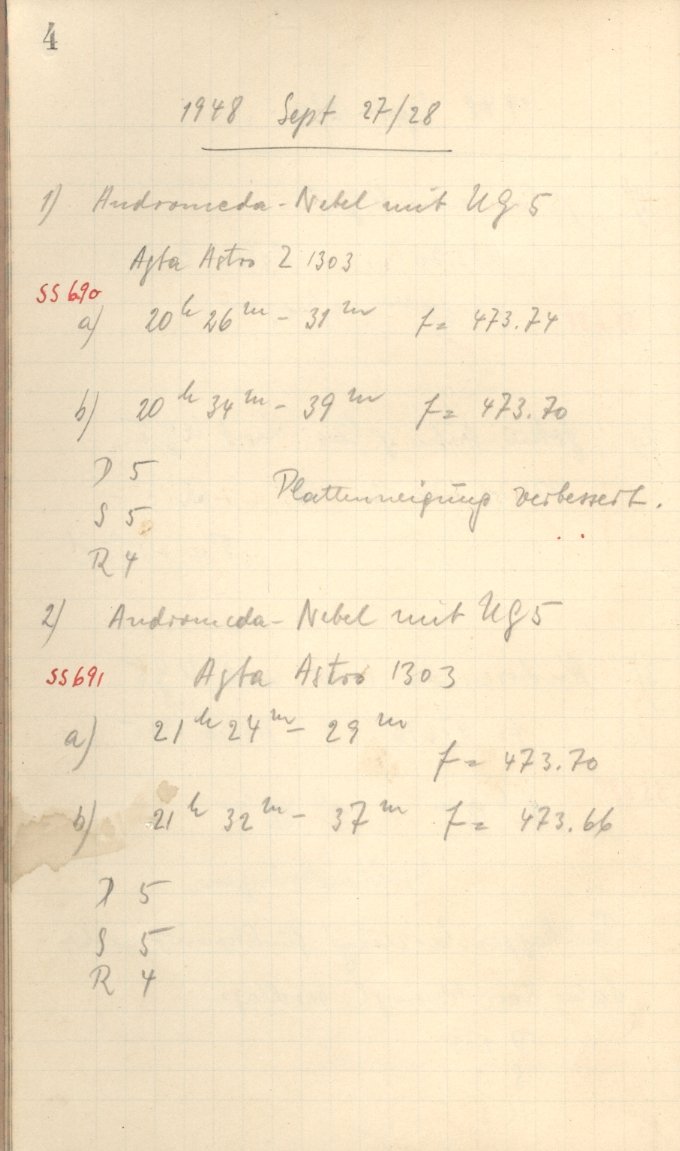 4
1948 Sept 27/28
1) Andromeda-Nebel mit UG 5
Agfa Astro Z 1303
SS 690
a) 20 h 26 m - 31 m f = 473.74
b) 20 h 34 m - 39 m f = 473.70
D 5
S 5 Plattenneigung verbessert.
R 4
2) Andromeda-Nebel mit UG 5
SS 691 Agfa Astro 1303
a) 21 h 24 m - 29 m
f = 473.70
b) 21 h 32 m - 37 m f = 473.66
D 5
S 5
R 4